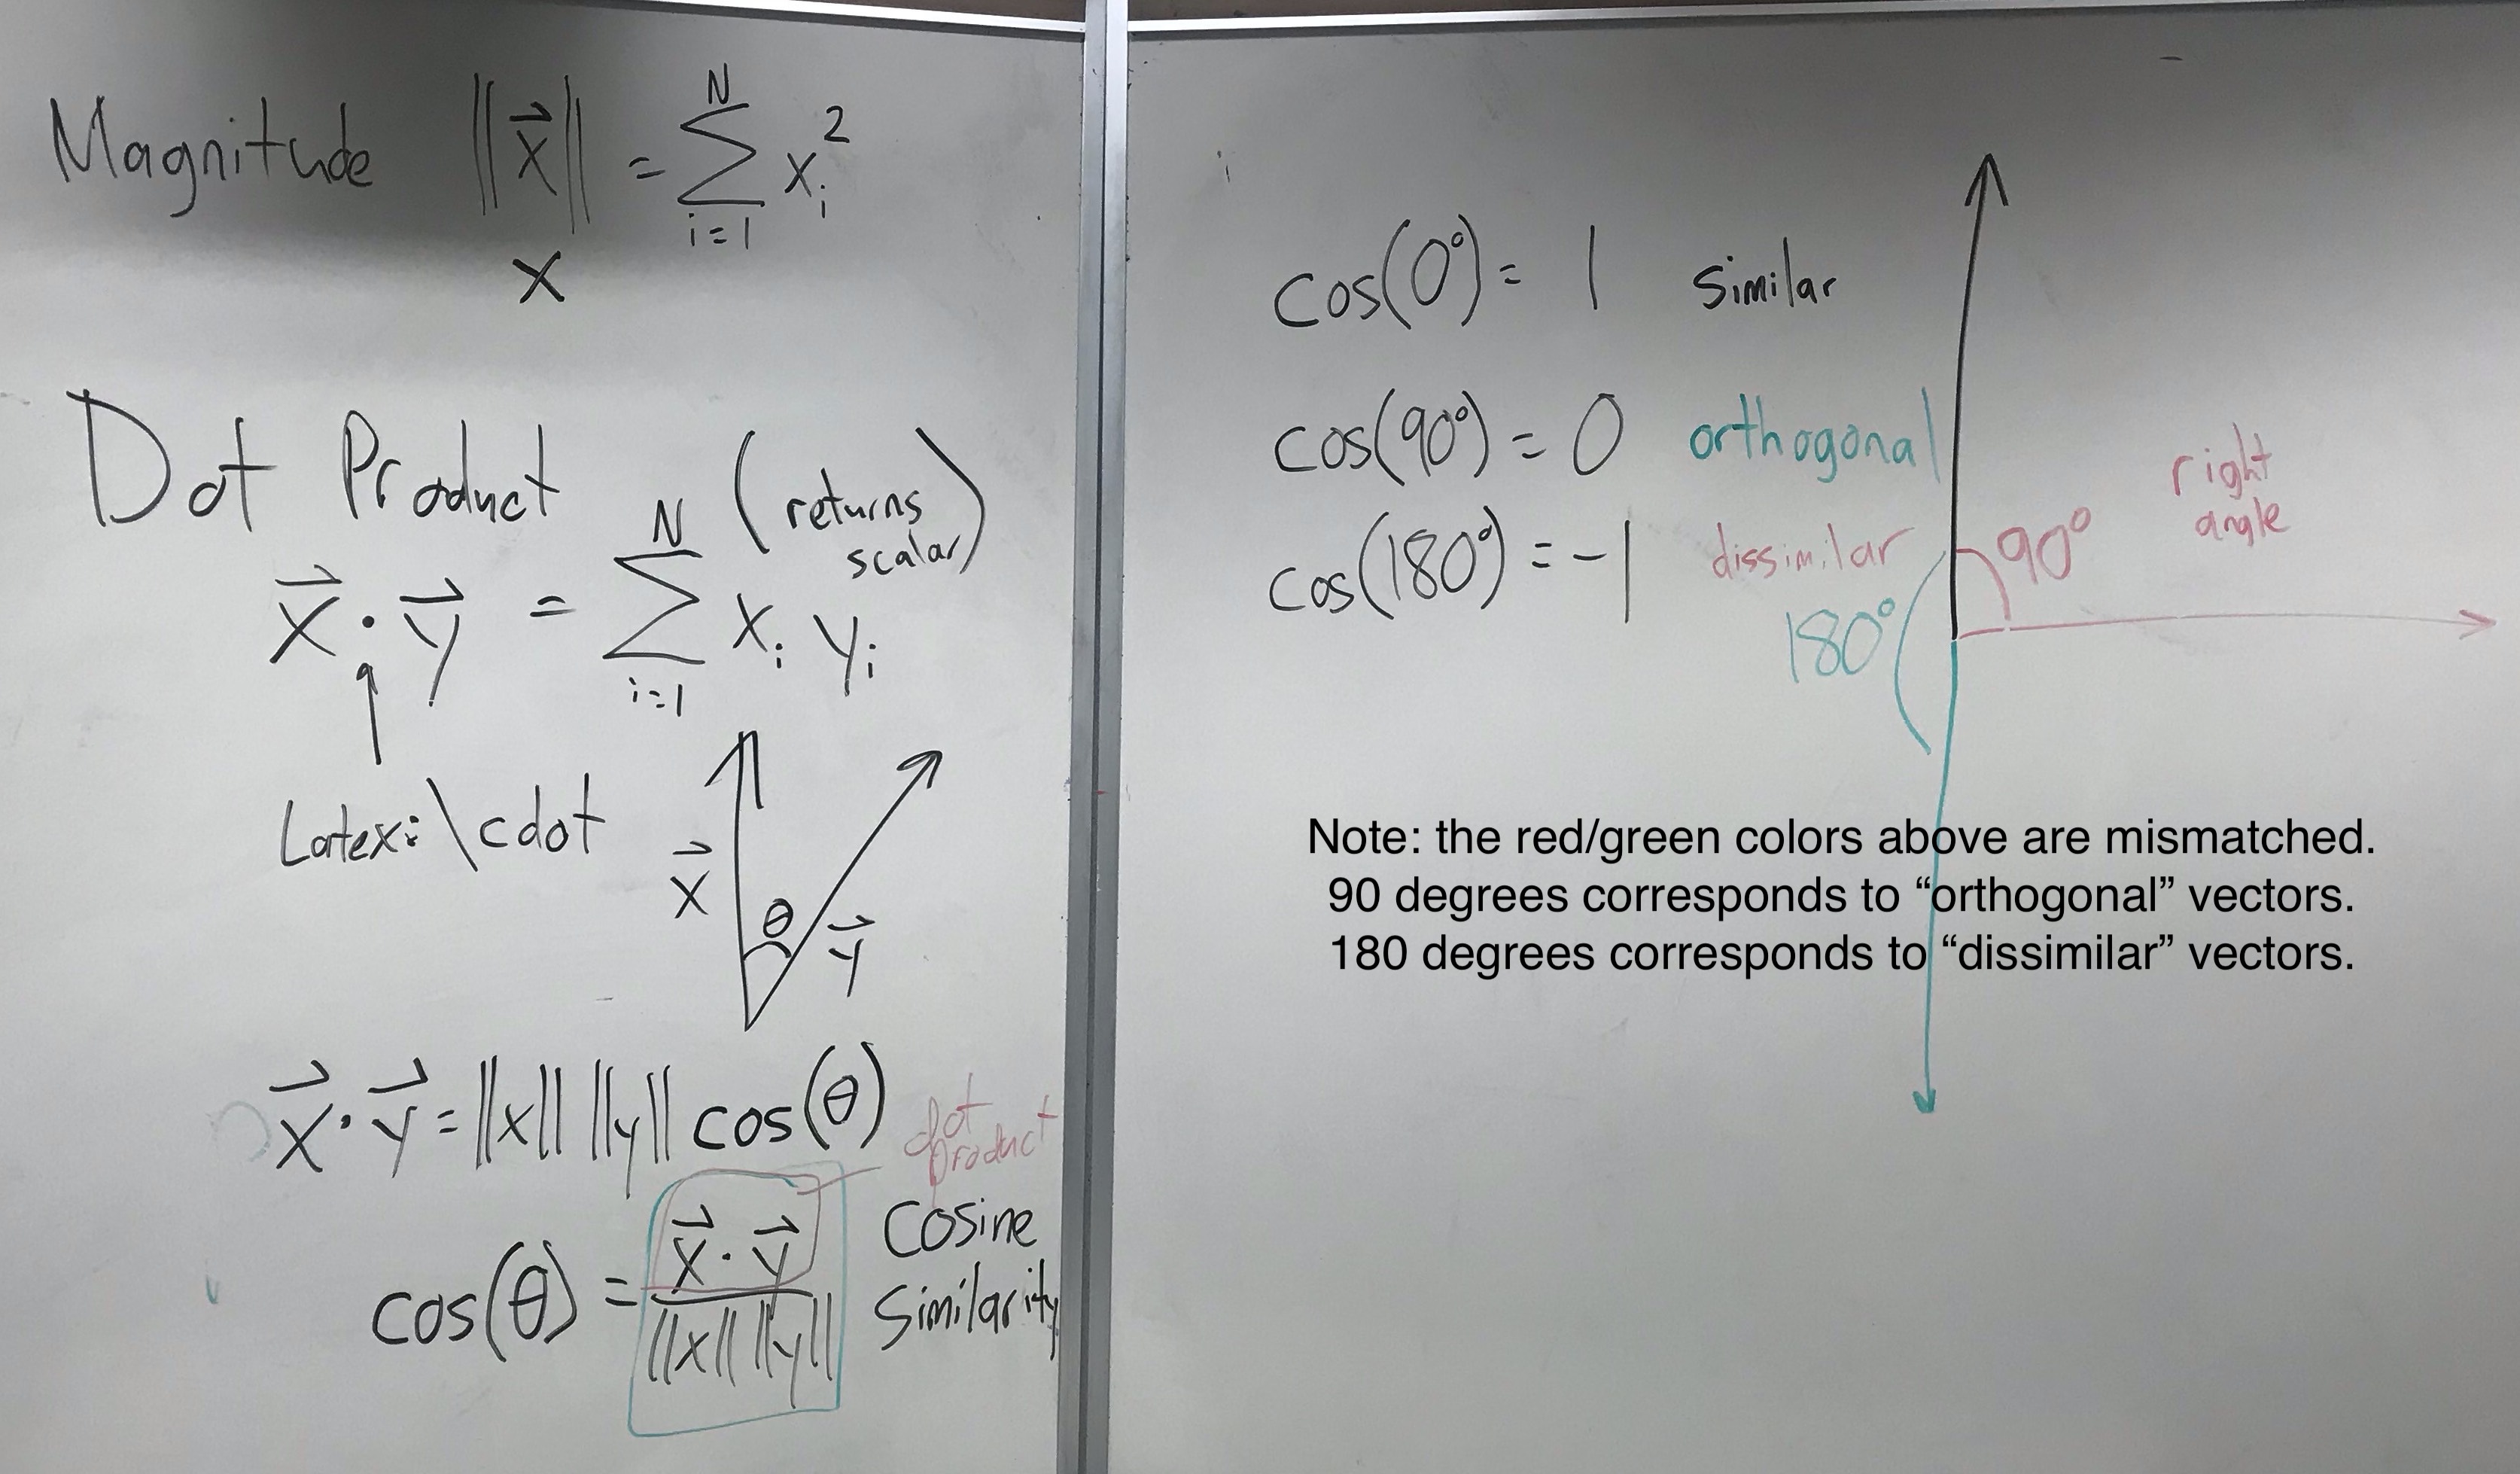 Magnitude ||x⃗|| = ∑_{i=1}^{N} x_i^2
x
Dot Product (returns scalar)
x⃗ · y⃗ = ∑_{i=1}^{N} x_i y_i
Latex: \cdot
x⃗ θ y⃗
x⃗ · y⃗ = ||x|| ||y|| cos(θ)
dot product
cos(θ) = x⃗ · y⃗ / ||x|| ||y||
Cosine
Similarity
cos(0°) = 1 similar
cos(90°) = 0 orthogonal
cos(180°) = -1 dissimilar
right
angle
90°
180°
Note: the red/green colors above are mismatched.
90 degrees corresponds to “orthogonal” vectors.
180 degrees corresponds to “dissimilar” vectors.